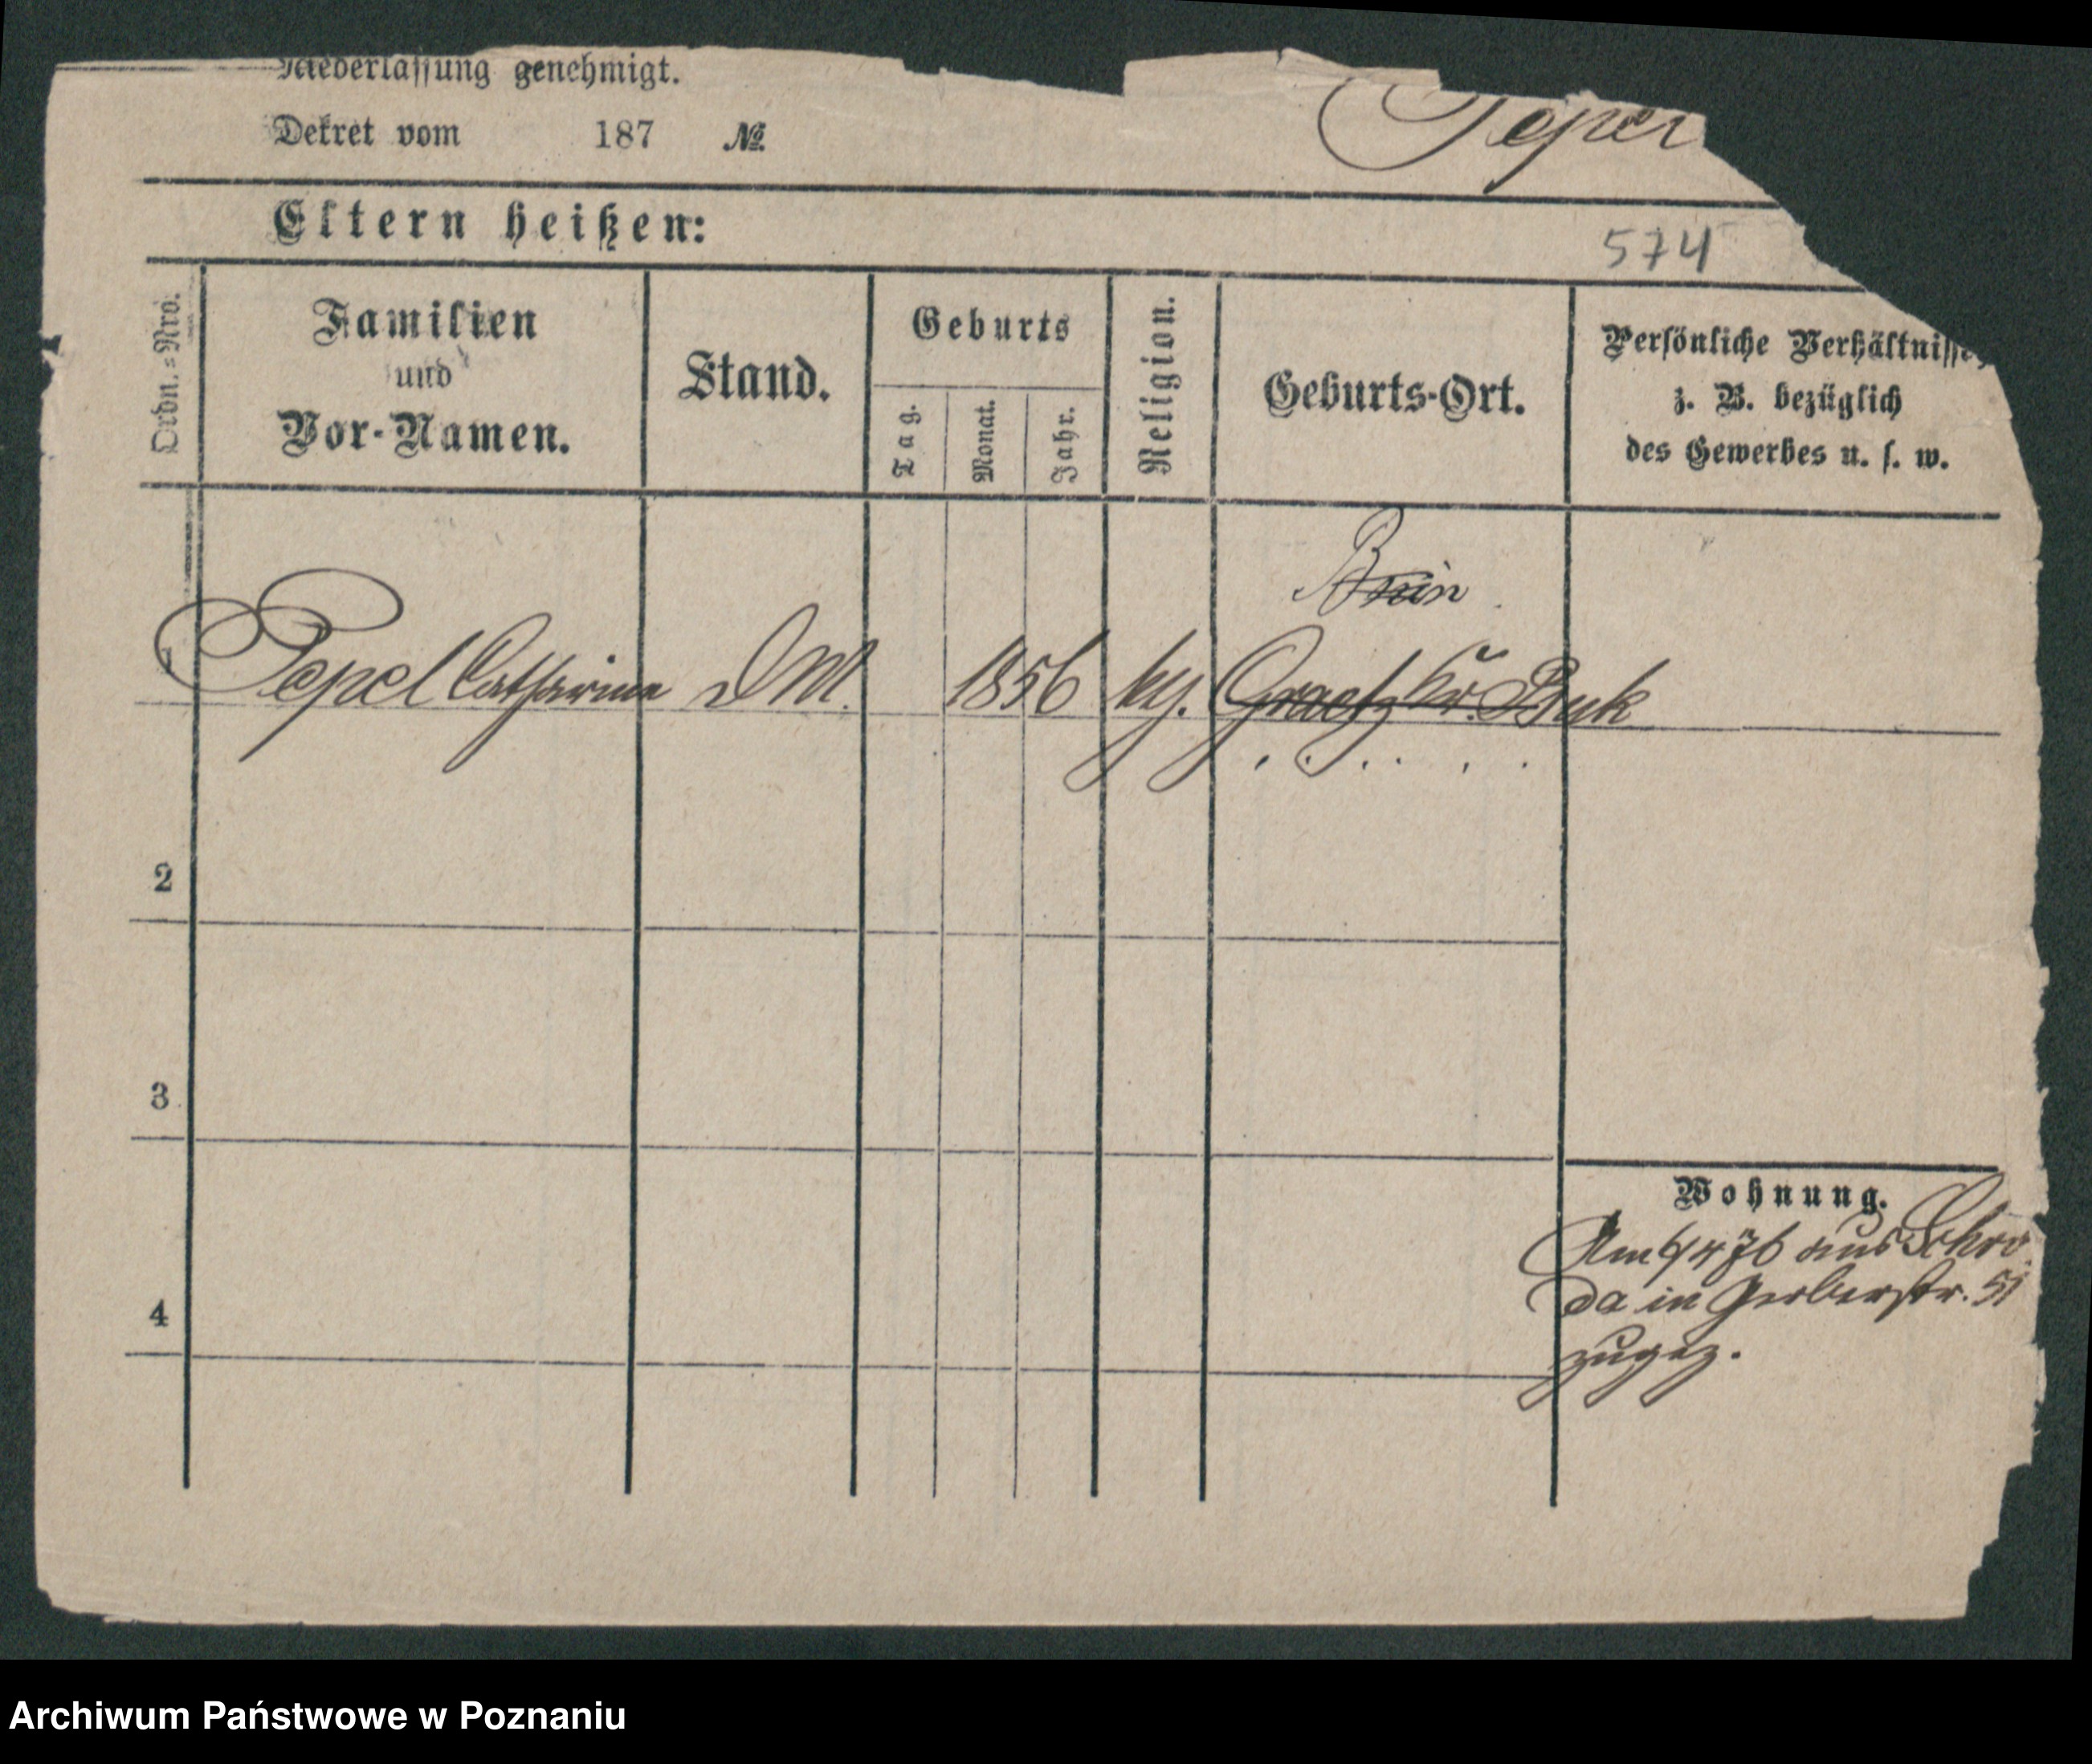 Niederlassung genehmigt.
Dekret vom 187 №
Pepel
Eltern heißen:
574
Ordn.=Nro.
Familien
und
Vor-Namen.
Stand.
Geburts
Tag.
Monat.
Jahr.
Religion.
Geburts-Ort.
Persönliche Verhältnisse,
z. B. bezüglich
des Gewerbes u. s. w.
Bnin
1 Pepel Catharina DM. 1856 kg. Graetz Kr. Buk
2
3
4
Wohnung.
Am 6/4 76 aus Schro
da in Gerberstr. 51
zugez.
Archiwum Państwowe w Poznaniu